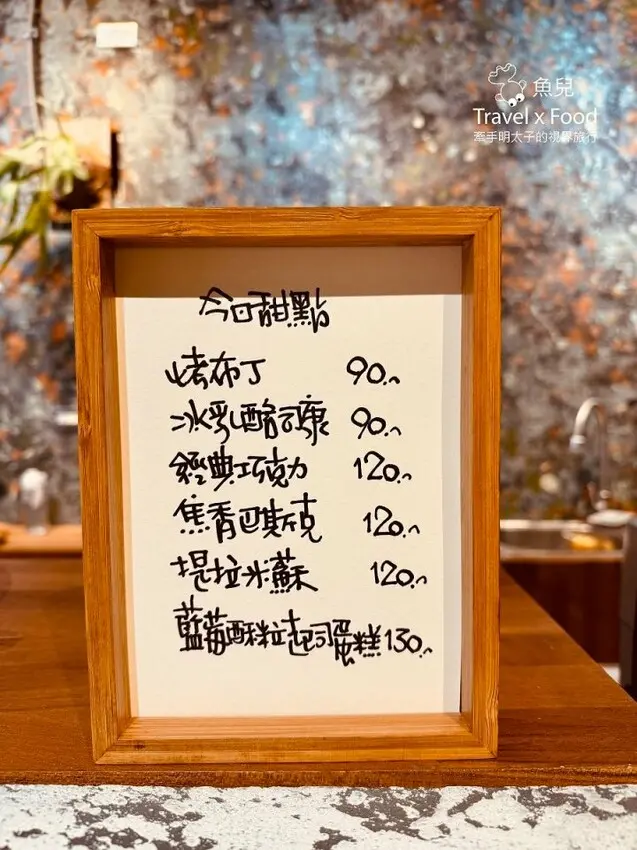 魚兒
Travel x Food
牽手明太子的視界旅行
今日甜點
烤布丁 90.
冰乳酪司康 90.
經典巧克力 120.
焦香巴斯克 120.
提拉米蘇 120.
藍莓酥粒起司蛋糕 130.